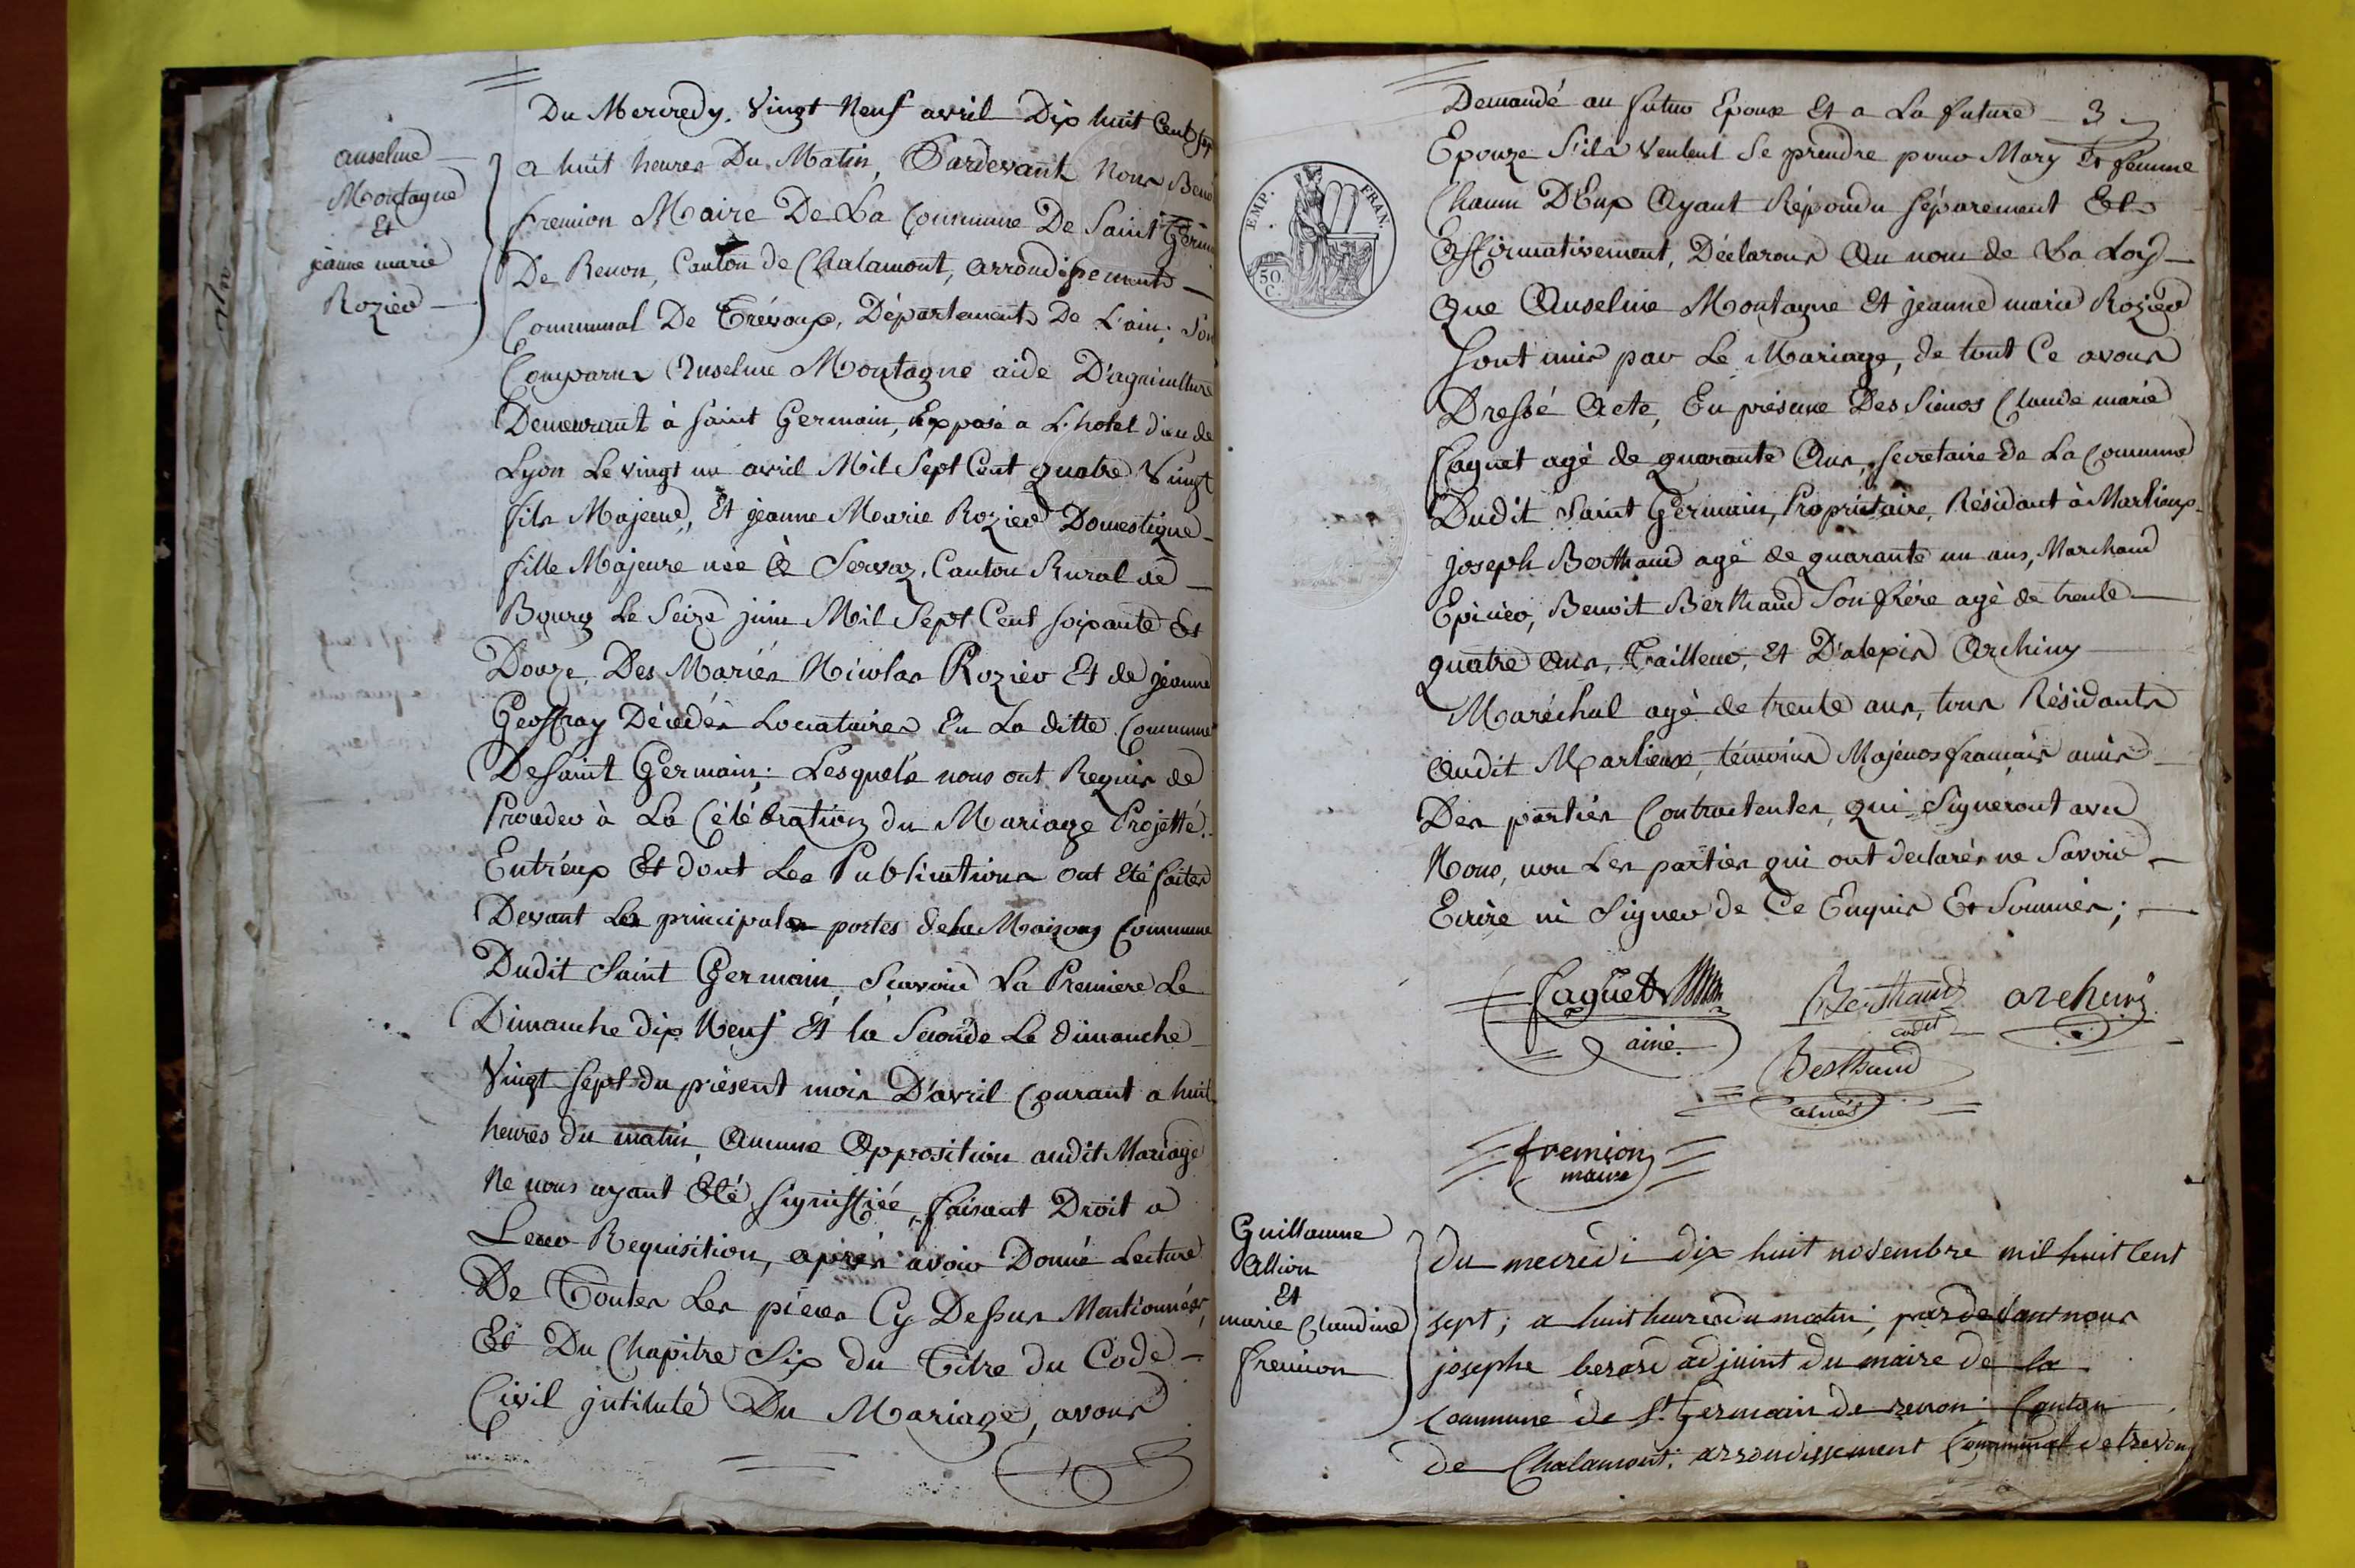 Du Mercredy, Vingt Neuf avril Dix huit Cent sept
anselme
Montagne
Et
jeanne marie
Rozier
a huit heures Du Matin, Pardevant Nous Benoit
fremion Maire De La Commune De Saint Germain
De Renon, Canton de Chalamont, arrondissement
Communal De Trévoux, Département De L'ain; Sont
Comparus Anselme Montagne aide D'agriculture
Demeurant à Saint Germain, Exposé a L'hotel dieu de
Lyon Le vingt un avril Mil Sept Cent quatre Vingt
fils Majeur, Et jeanne Marie Rozier Domestique
fille Majeure née à Servaz, Canton Rural de
Bourg Le Seize juin Mil Sept Cent soixante Et
Douze, Des Mariés Nicolas Rozier Et de jeanne
Geoffray Décédés Locataires En La ditte Commune
De Saint Germain; Lesquels nous ont Requis de
Proceder à La Célébration du Mariage Projetté
Entr'eux Et dont Les Publications ont été faites
Devant La principale portes de la Maison Commune
Dudit Saint Germain, Scavoir La Premiere Le
Dimanche dix Neuf Et la Seconde Le dimanche
Vingt sept du présent mois D'avril Courant a huit
heures du matin, Aucune Opposition audit Mariage
Ne nous ayant Eté signiffiée, faisant Droit a
Leur Requisition, après avoir Donné Lecture
De Toutes Les pieces Cy Dessus Mentionnées,
Et Du Chapitre Six du Titre du Code
Civil jntitulé Du Mariage, avons
Demandé au futur Epoux Et a La future 3
Epouze S'ils Veulent Se prendre pour Mary Et femme
Chacun D'Eux Ayant Répondu séparement Et
Affirmativement, Déclarons Au nom de La Loy
Que Anselme Montagne Et jeanne marie Rozier
Sont unis par Le Mariage, de tout Ce avons
Dressé Acte, En présence Des Sieurs Claude marie
faguet agé de quarante Ans, secretaire de La Commune
Dudit Saint Germain, Propriétaire, Résidant à Marlieux
joseph Berthaud agé de quarante un ans, Marchand
Epicier, Benoit Berthaud Son frère agé de trente
quatre Ans, Tailleur, Et D'alexis Archiny
Maréchal agé de trente ans, tous Résidants
Audit Marlieux, témoins Majeurs français amis
Des parties Contractentes, qui Signeront avec
Nous, non Les parties qui ont declarés ne Savoir
Ecrire ni Signer de Ce Enquis Et Sommés;
EMP. FRAN.
50 C.
faguet
ainé
Berthaud
cadet
archini
Berthaud
ainés
fremion
maire
Guillaume
Allion
Et
marie Claudine
fremion
du mecredi dix huit novembre mil huit cent
sept; a huit heures du matin; pardevant nous
josephe berard adjoint du maire de la
Commune de St Germain de renon Canton
de Chalamont: arrondissement Communal de trevoux